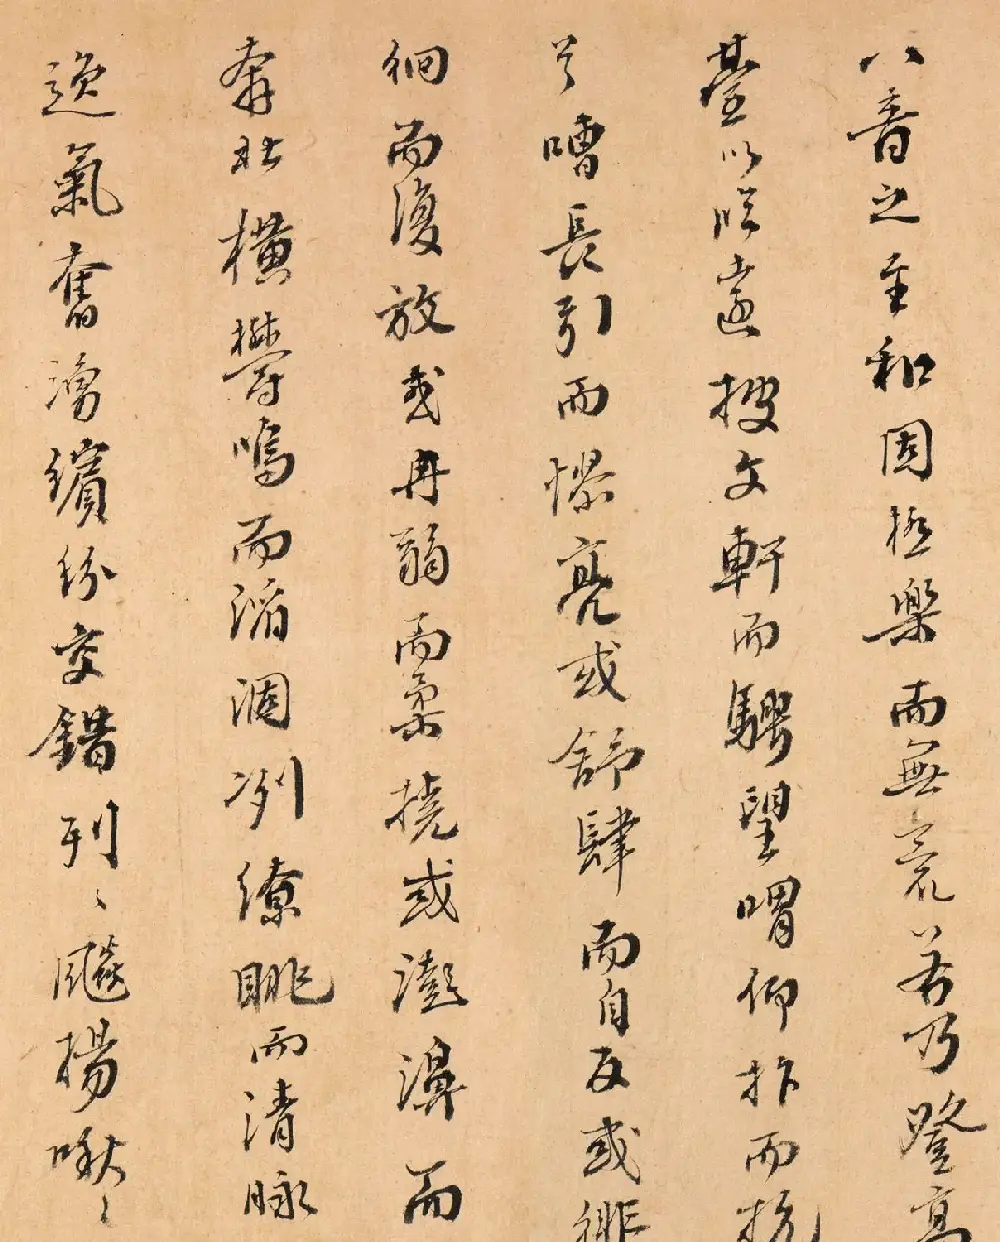 八音之至和固極樂而無荒若乃登高
臺以臨遠披文軒而騁望喟仰抃而抗
首嘈長引而憀亮或舒肆而自反或徘
徊而復放或冉弱而柔撓或澎濞而
奔壯橫鬱鳴而滔涸冽繚眺而清昶
逸氣奮湧繽紛交錯列〻飈揚啾〻